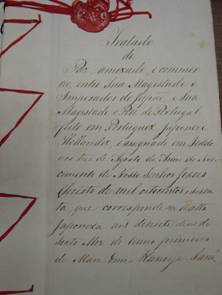 Tratado
de
Paz amizade e commer-
cio entre Sua Magestade o
Imperador do Japão e Sua
Magestade o Rei de Portugal
feito em Portuguez Japonez e
Hollandez e assignado em Yeddo
aos tres de Agosto do Anno do Nas-
cimento de Nosso Senhor Jesus
Christo de mil oitocentos e sessen-
ta que corresponde na data
Japoneza aos dezasete dias do
Mez do anno primeiro
de Man